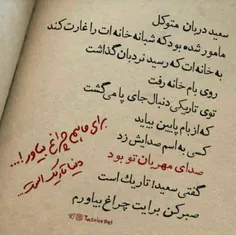 سعید دربان متوکل
مامور شده بود که شبانه خانه ات را غارت کند
به خانه ات که رسید نردبان گذاشت
روی بام خانه رفت
توی تاریکی دنبال جای پا می گشت
که از بام پایین بیاید
کسی به اسم صدایش زد
صدای مهربان تو بود
گفتی سعید! تاریک است
صبر کن برایت چراغ بیاورم
برای ما هم چراغ بیاور!...
دنیا تاریک است...